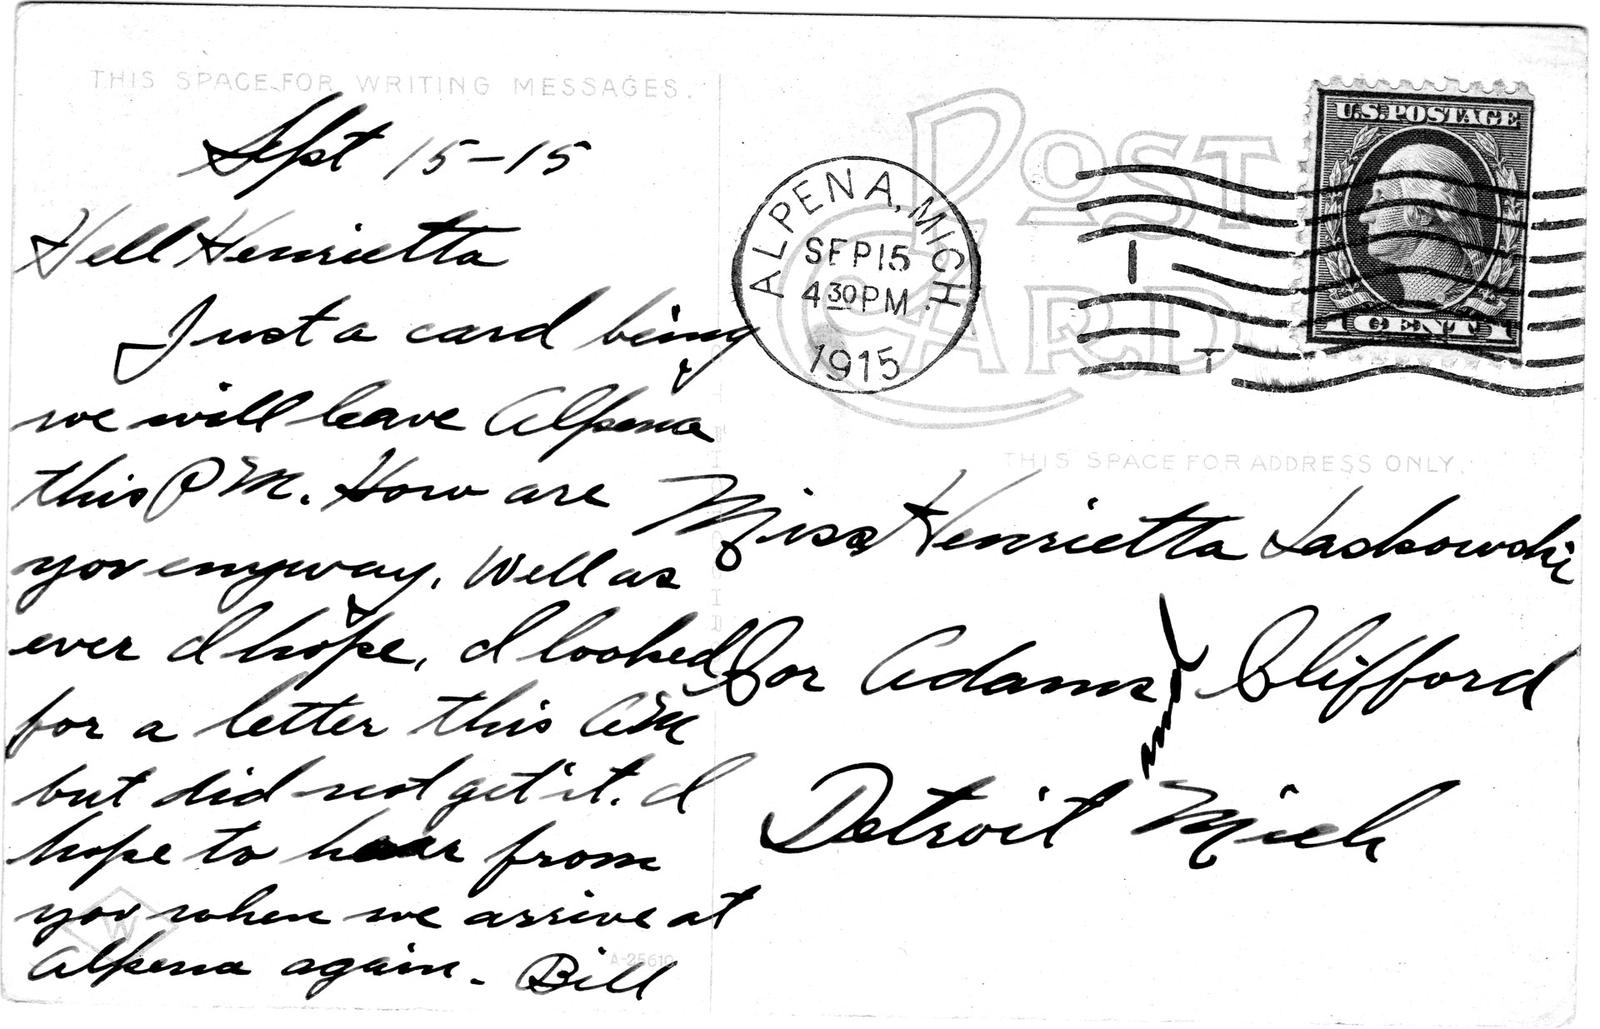 THIS SPACE FOR WRITING MESSAGES.
Sept 15-15
Hell Henrietta
Just a card being
we will leave Alpena
this PM. How are
you anyway. Well as
ever I hope, I looked
for a letter this AM
but did not get it. I
hope to hear from
you when we arrive at
Alpena again. Bill
W
A-25610
POST CARD
ALPENA, MICH.
SEP 15
4 30 PM
1915
U.S. POSTAGE
1 CENT 1
THIS SPACE FOR ADDRESS ONLY.
Miss Henrietta Laskowski
Cor Adams and Clifford
Detroit Mich